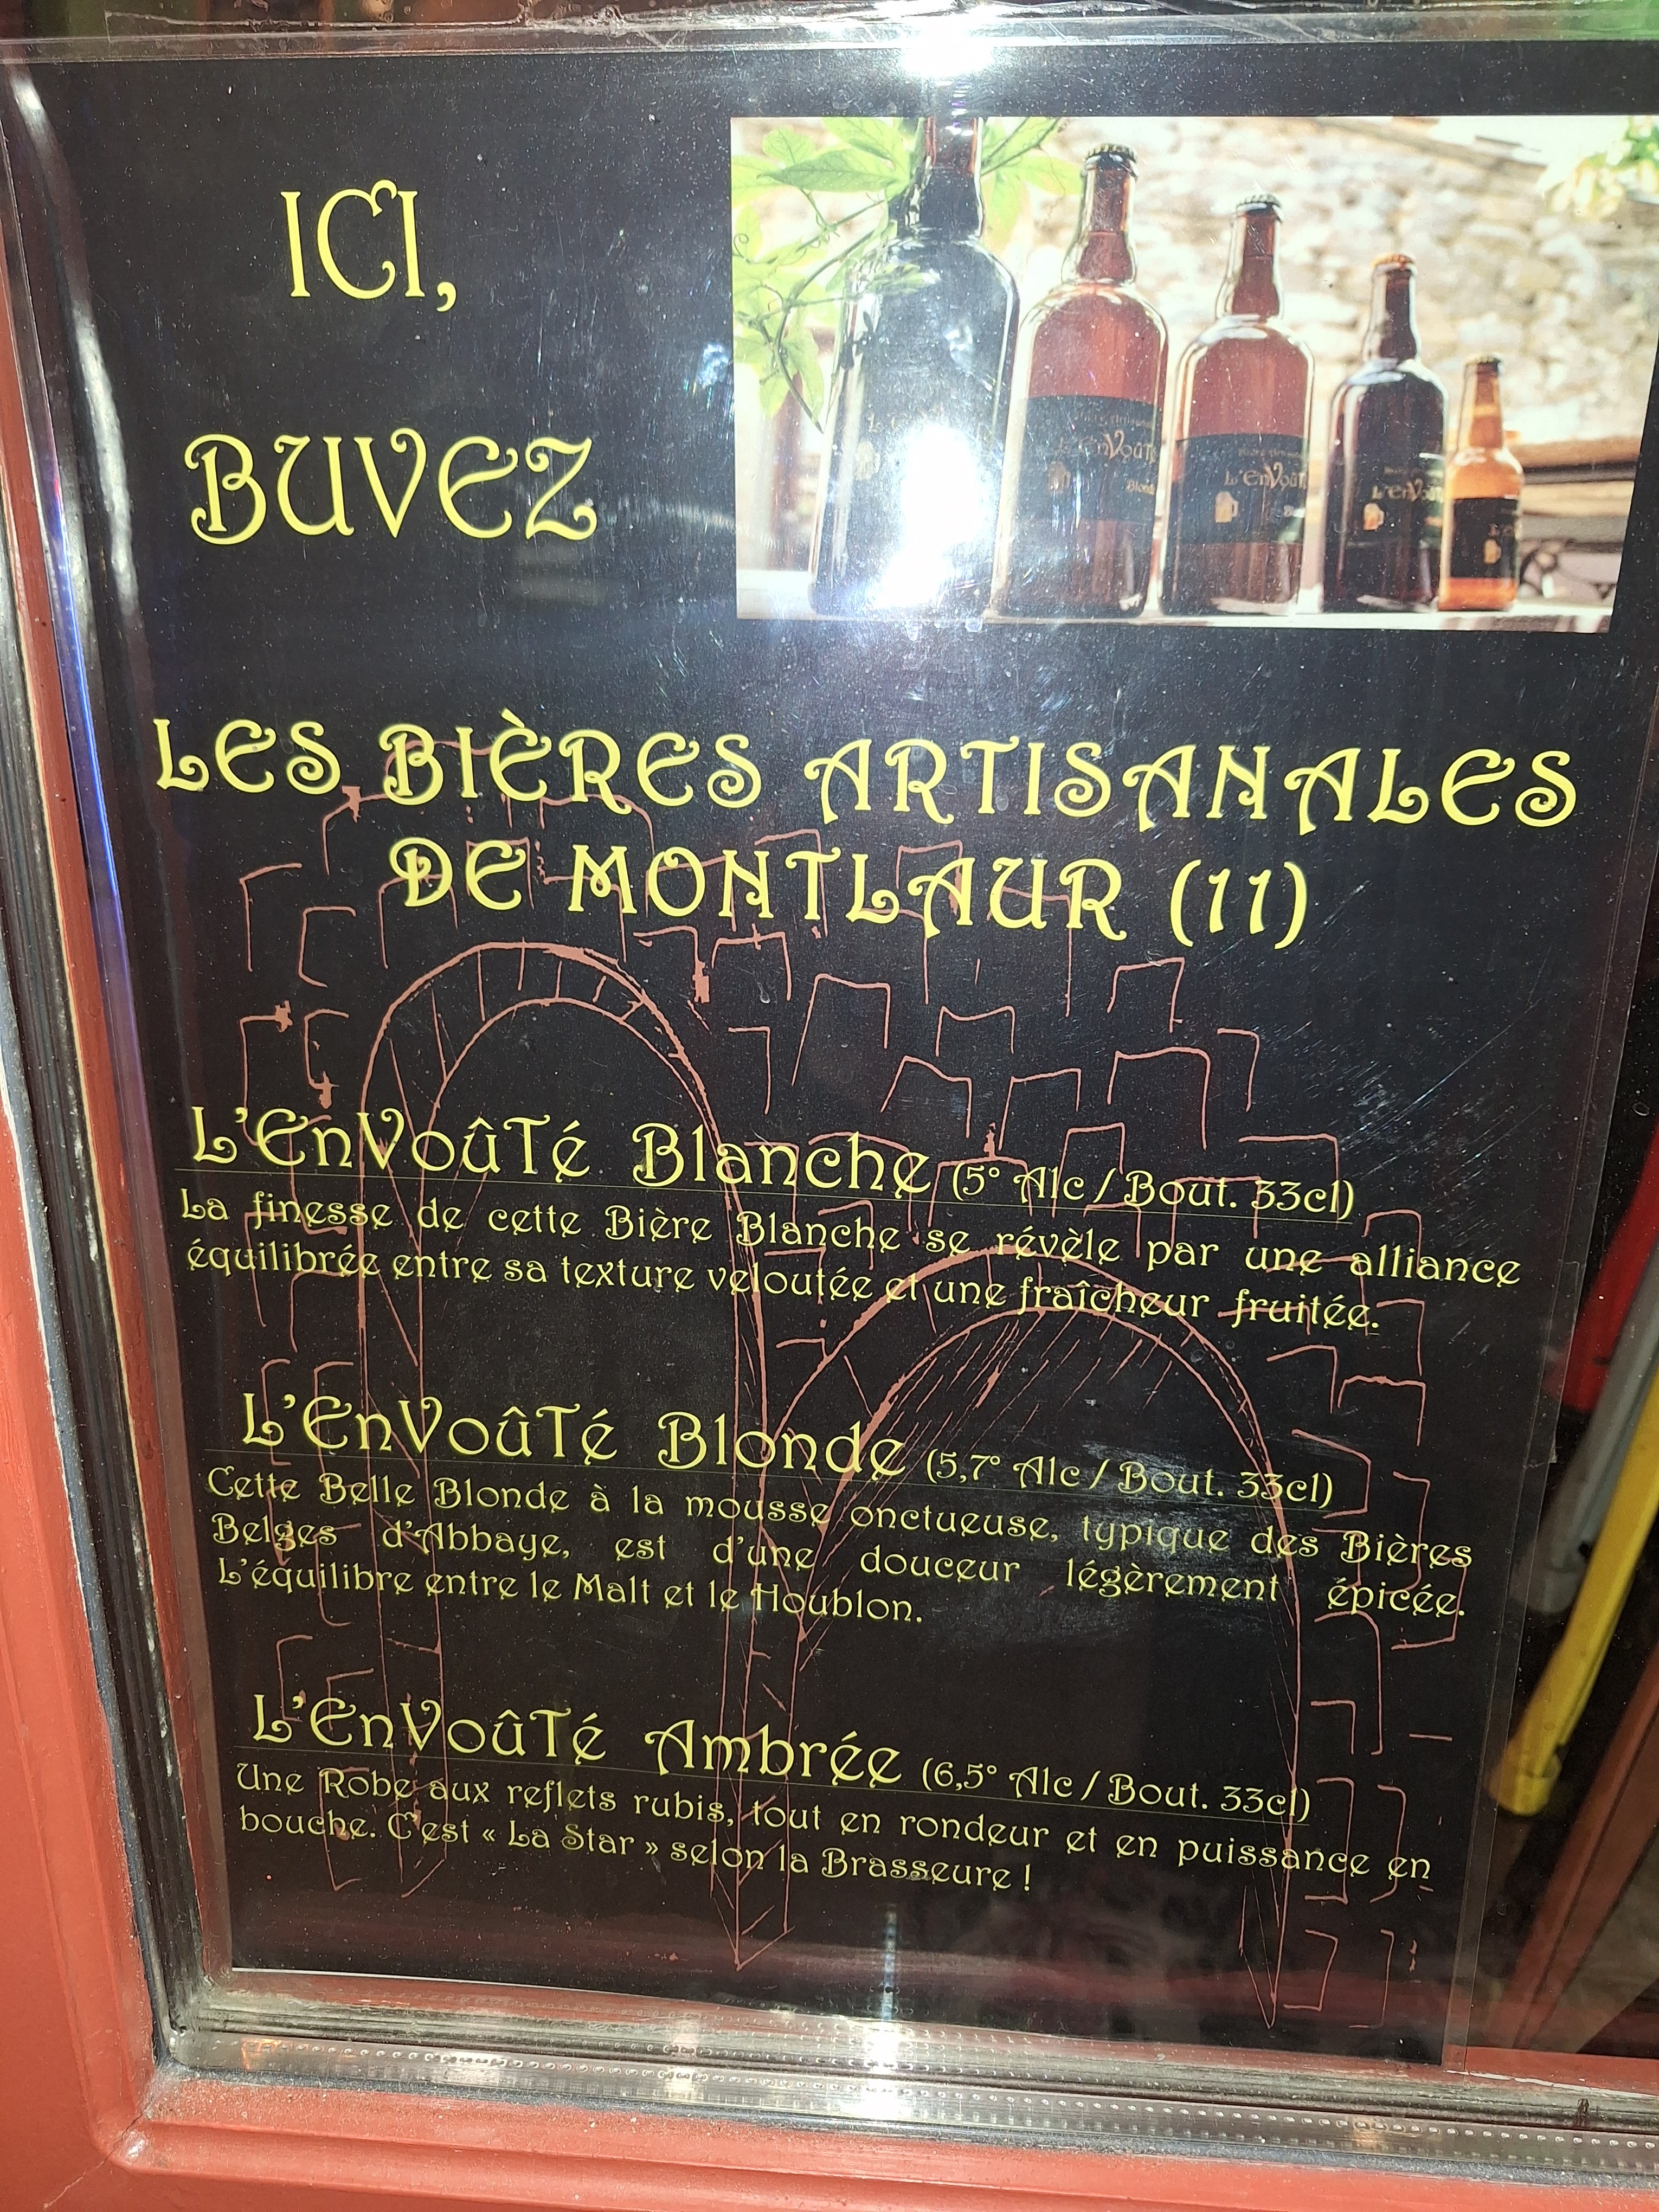 ICI,
BUVEZ
L'EnVoûT
Blond
L'EnVoûT
L'EnVoû
LES BIÈRES ARTISANALES
DE MONTLAUR (11)
L'EnVoûTé Blanche (5° Alc / Bout. 33cl)
La finesse de cette Bière Blanche se révèle par une alliance
équilibrée entre sa texture veloutée et une fraîcheur fruitée.
L'EnVoûTé Blonde (5,7° Alc / Bout. 33cl)
Cette Belle Blonde à la mousse onctueuse, typique des Bières
Belges d'Abbaye, est d'une douceur légèrement épicée.
L'équilibre entre le Malt et le Houblon.
L'EnVoûTé Ambrée (6,5° Alc / Bout. 33cl)
Une Robe aux reflets rubis, tout en rondeur et en puissance en
bouche. C'est « La Star » selon la Brasseure !